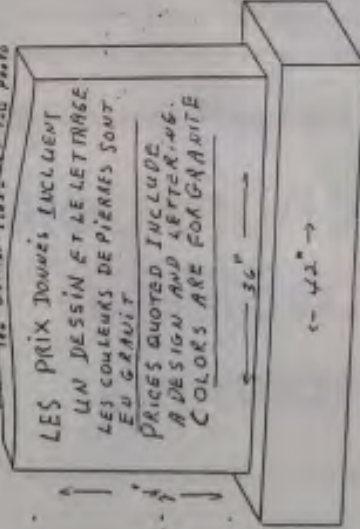 LES PRIX DONNÉS INCLUENT
UN DESSIN ET LE LETTRAGE
LES COULEURS DE PIERRES SONT
EN GRANIT
PRICES QUOTED INCLUDE
A DESIGN AND LETTERING.
COLORS ARE FOR GRANITE
36"
42"